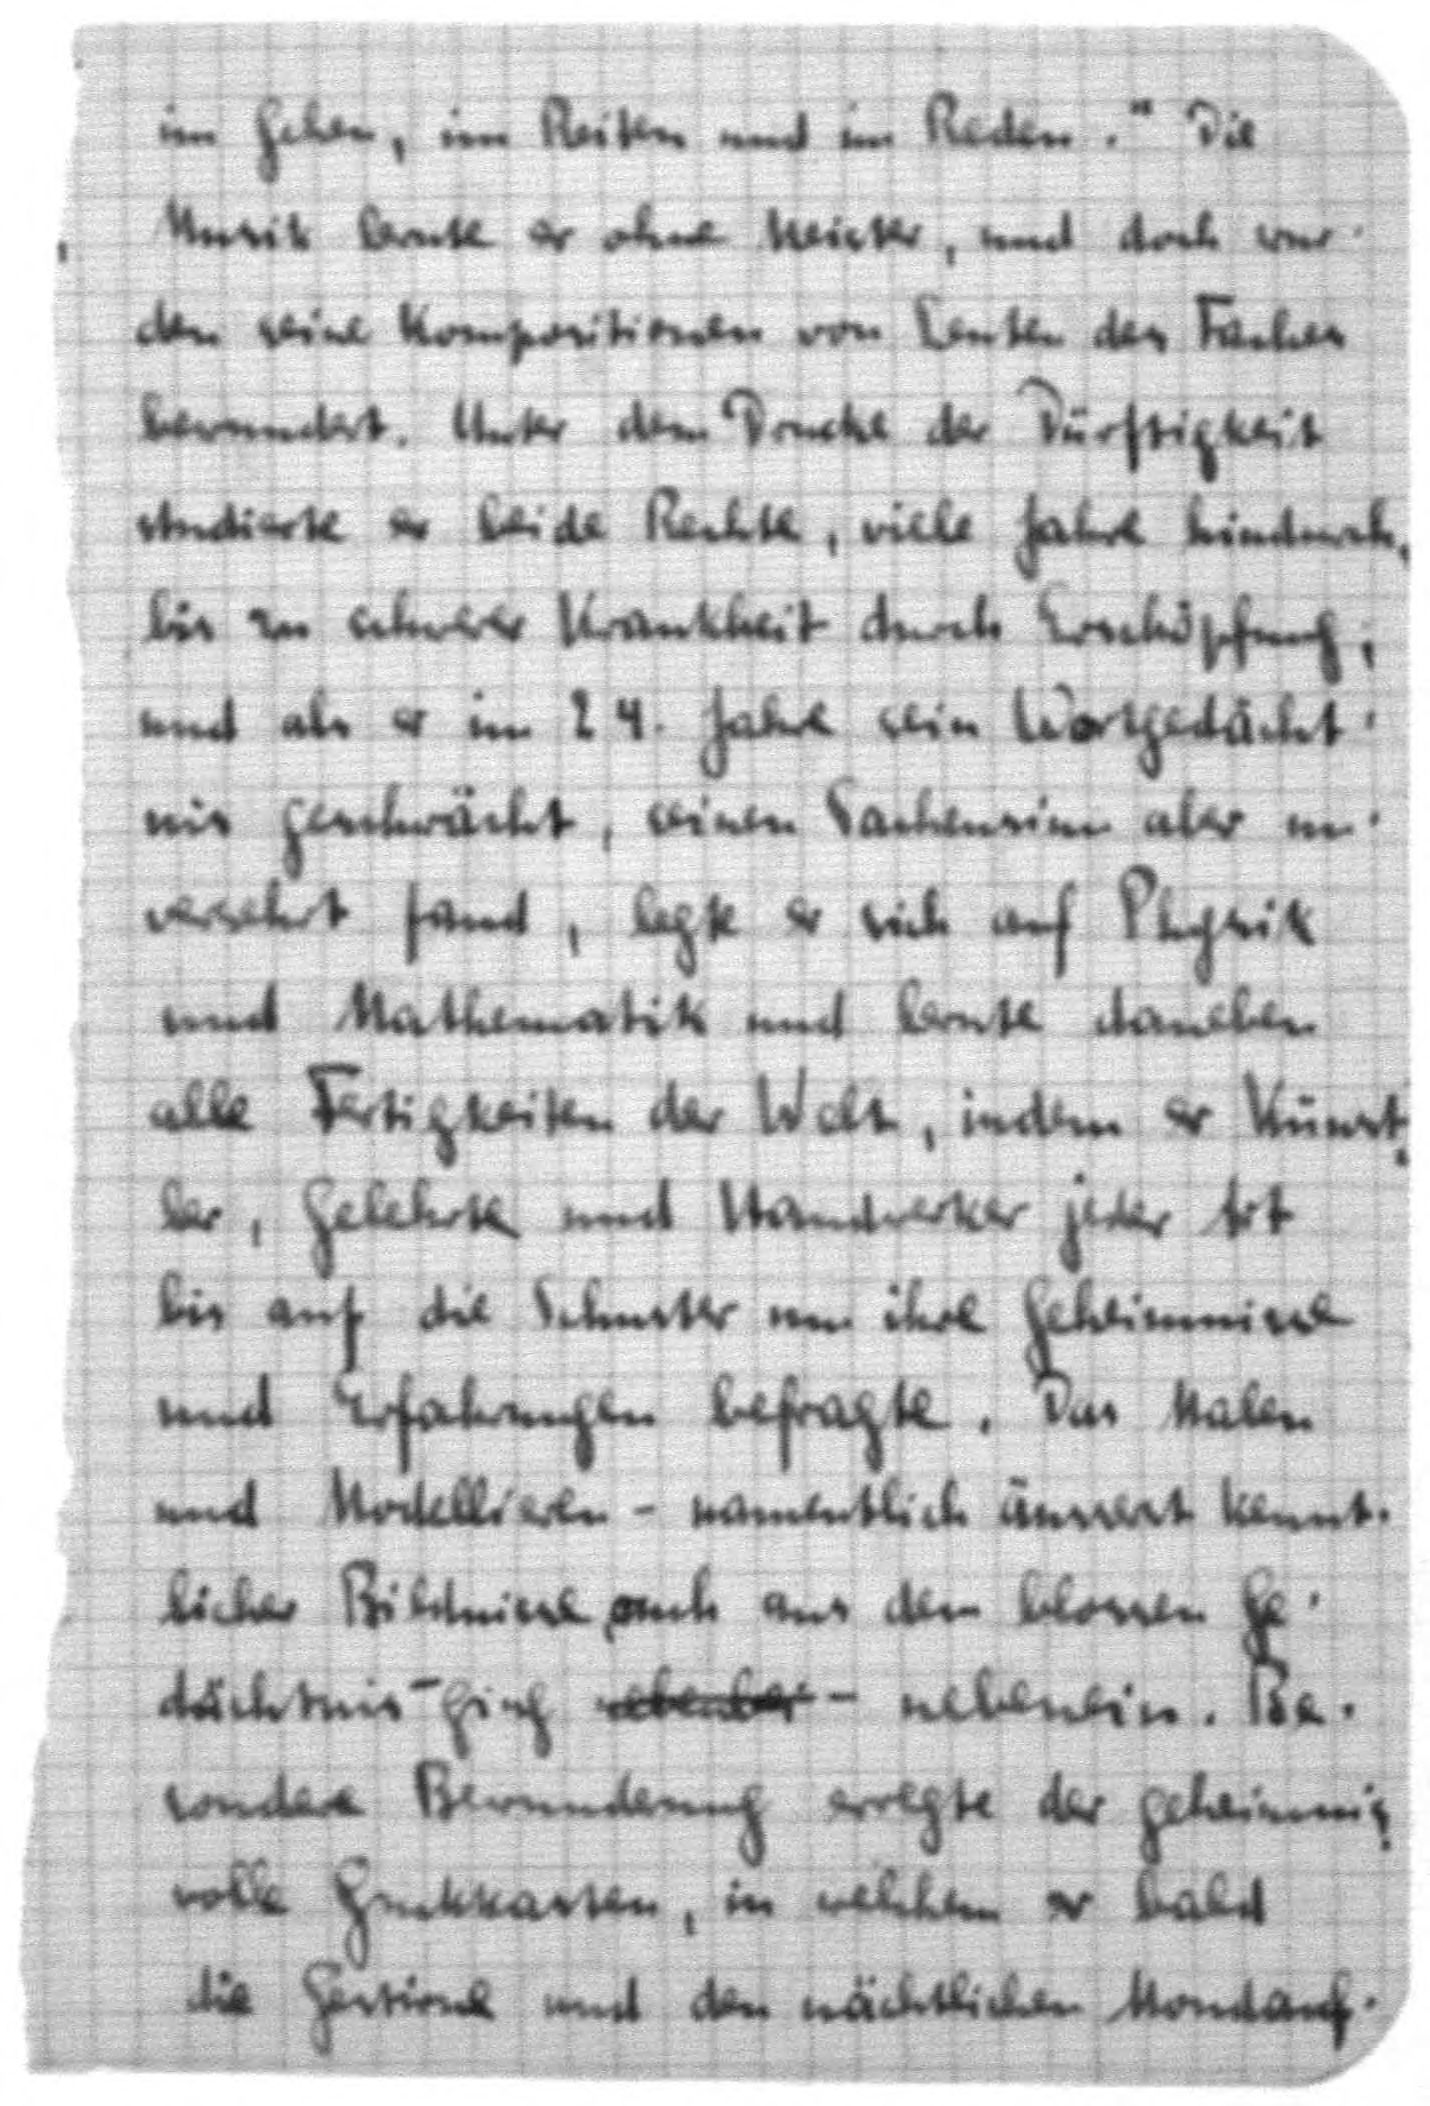 im Gehen, im Reiten und im Reden." Die
Musik lernte er ohne Meister, und doch wur-
den seine Kompositionen von Leuten des Faches
bewundert. Unter dem Drucke der Dürftigkeit
studierte er beide Rechte, viele Jahre hindurch,
bis zu schwerer Krankheit durch Erschöpfung;
und als er im 24. Jahre sein Wortgedächt-
nis geschwächt, seinen Sachensinn aber un-
versehrt fand, legte er sich auf Physik
und Mathematik und lernte daneben
alle Fertigkeiten der Welt, indem er Künst-
ler, Gelehrte und Handwerker jeder Art
bis auf die Schuster um ihre Geheimnisse
und Erfahrungen befragte. Das Malen
und Modellieren - namentlich äusserst kennt-
licher Bildnisse, auch aus dem blossen Ge-
dächtnis - ging - nebenein. Be-
sondere Bewunderung erregte der geheimnis-
volle Guckkasten, in welchem er bald
die Gestirne und den nächtlichen Mondauf-